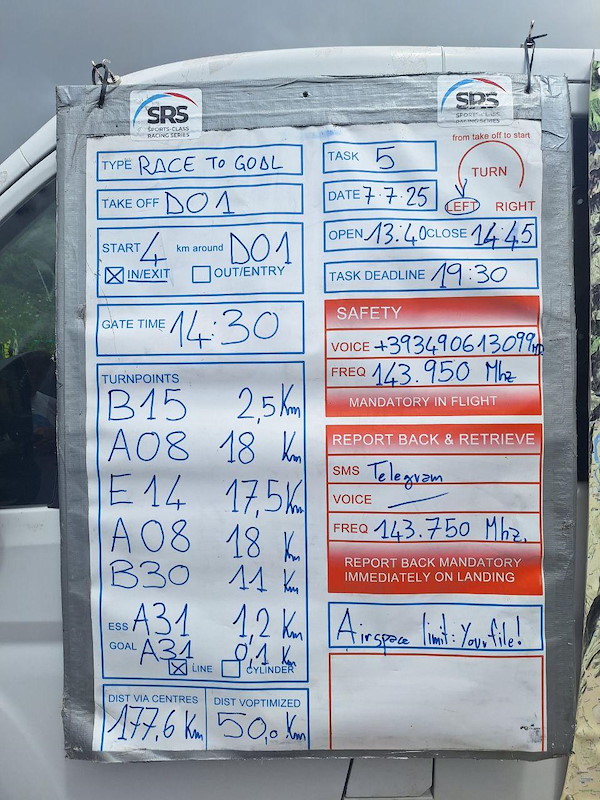 SRS
SPORTS-CLASS
RACING SERIES
SRS
SPORTS-CLASS
RACING SERIES
TYPE RACE TO GOAL
TAKE OFF D01
START 4 km around D01
IN/EXIT OUT/ENTRY
GATE TIME 14:30
TURNPOINTS
B15 2,5 Km
A08 18 Km
E14 17,5 Km
A08 18 Km
B30 11 Km
ESS A31 1,2 Km
GOAL A31 0,1 Km
LINE CYLINDER
DIST VIA CENTRES
177,6 Km
DIST VOPTIMIZED
50,0 Km
TASK 5
DATE 7.7.25
from take off to start
TURN
LEFT RIGHT
OPEN 13:40 CLOSE 14:45
TASK DEADLINE 19:30
SAFETY
VOICE +393490613099
FREQ 143.950 Mhz
MANDATORY IN FLIGHT
REPORT BACK & RETRIEVE
SMS Telegram
VOICE
FREQ 143.750 Mhz.
REPORT BACK MANDATORY
IMMEDIATELY ON LANDING
Airspace limit: Your file!